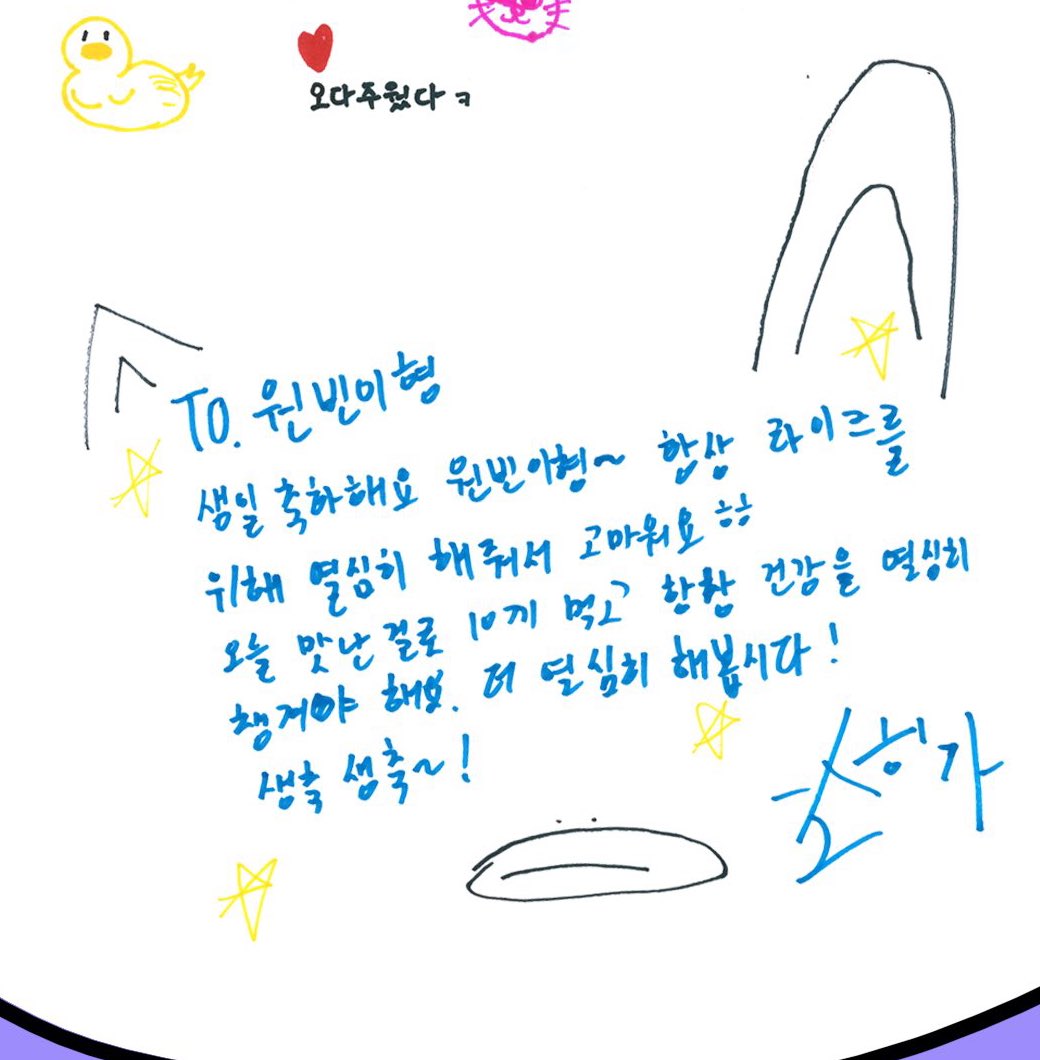 오다주웠다 ㅋ
TO. 원빈이형
생일 축하해요 원빈이형~ 항상 라이즈를
위해 열심히 해줘서 고마워요 ㅎㅎ
오늘 맛난 걸로 10끼 먹고 항상 건강을 열심히
챙겨야 해요. 더 열심히 해봅시다!
생축 생축~!